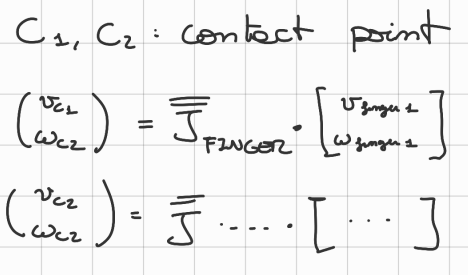 C₁, C₂ : contact point
(v_c1 ω_c2) = J_FINGER · [v_finger 1 ω_finger 1]
(v_c2 ω_c2) = J ..... · [ ... ]